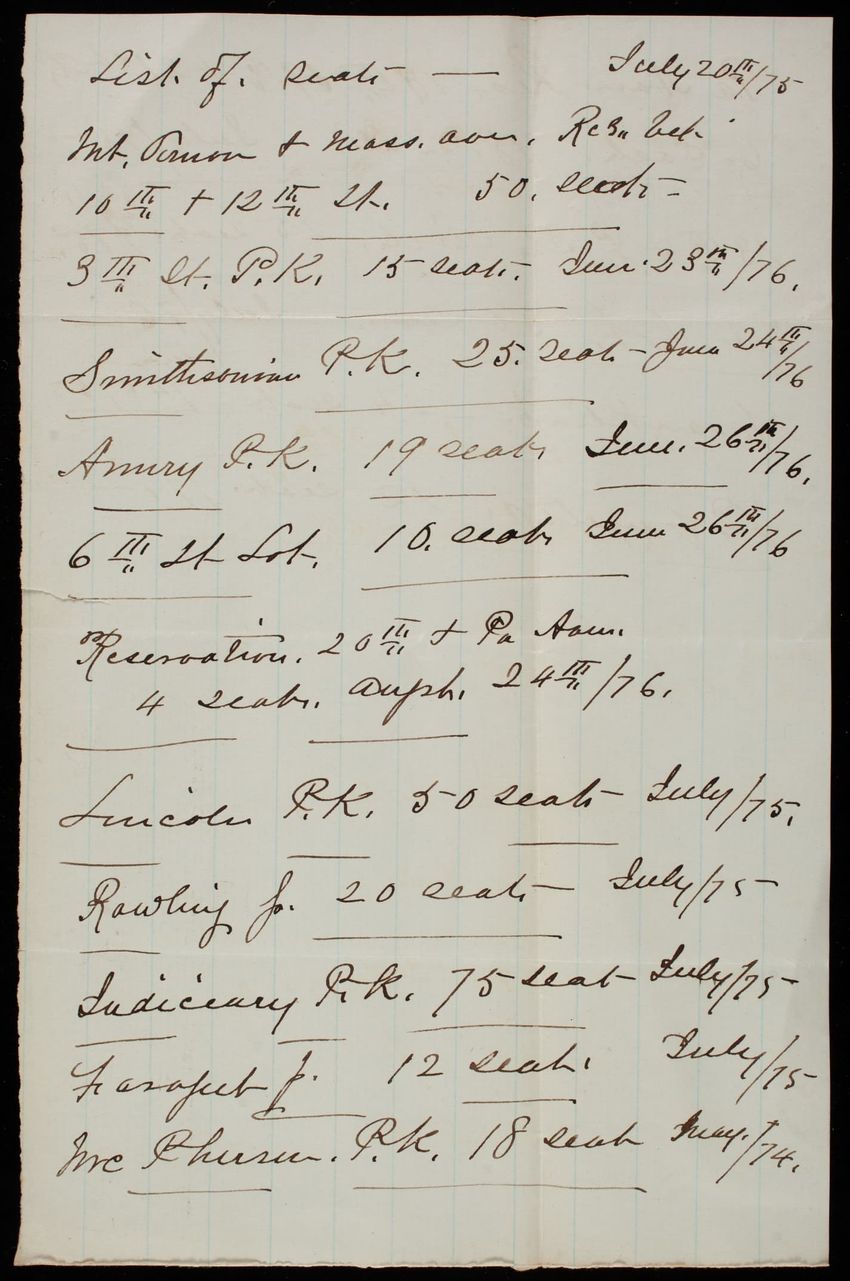 List. of. seats — July 20th/75
Mt. Vernon & Mass. aven. Resn bet.
10th & 12th St. 50. seats
3th St. P.K. 15 seats. June 23th/76.
Smithsonian P.K. 25. seats - June 24th/76
Amury P.K. 19 seats June. 26th/76.
6th St Lot. 10. seats June 26th/76
Reservation. 20th & Pa Aven.
4 seats. 24th/76.
Lincoln P.K. 50 seats July/75.
Rawling 20 seats July/75
Judiceary P.K. 75 seats July/75
Faragut 12 seats. July/75
Mc Pherson. P.K. 18 seats May./74.